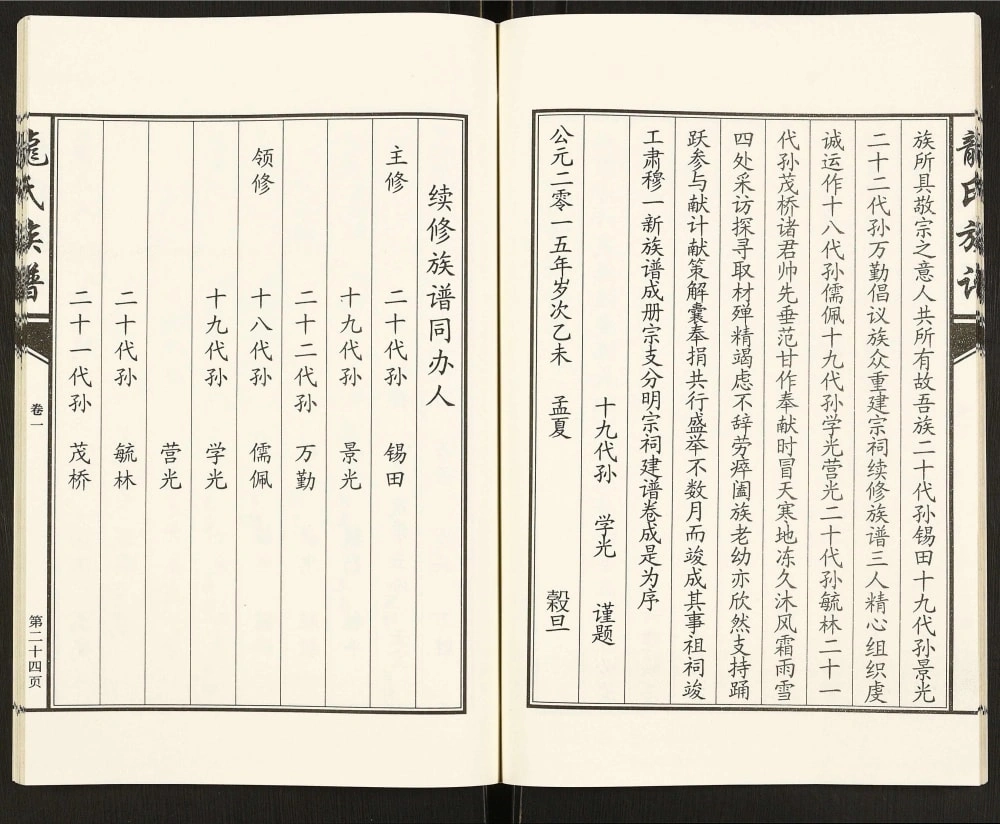 龍氏族谱
族所具敬宗之意人共所有故吾族二十代孙锡田十九代孙景光
二十二代孙万勤倡议族众重建宗祠续修族谱三人精心组织虔
诚运作十八代孙儒佩十九代孙学光营光二十代孙毓林二十一
代孙茂桥诸君帅先垂范甘作奉献时冒天寒地冻久沐风霜雨雪
四处采访探寻取材殚精竭虑不辞劳瘁阖族老幼亦欣然支持踊
跃参与献计献策解囊奉捐共行盛举不数月而竣成其事祖祠竣
工肃穆一新族谱成册宗支分明宗祠建谱卷成是为序
十九代孙 学光 谨题
公元二零一五年岁次乙未 孟夏 榖旦
续修族谱同办人
主修 二十代孙 锡田
十九代孙 景光
二十二代孙 万勤
领修 十八代孙 儒佩
十九代孙 学光
营光
二十代孙 毓林
二十一代孙 茂桥
龍氏族谱 卷一 第二十四页